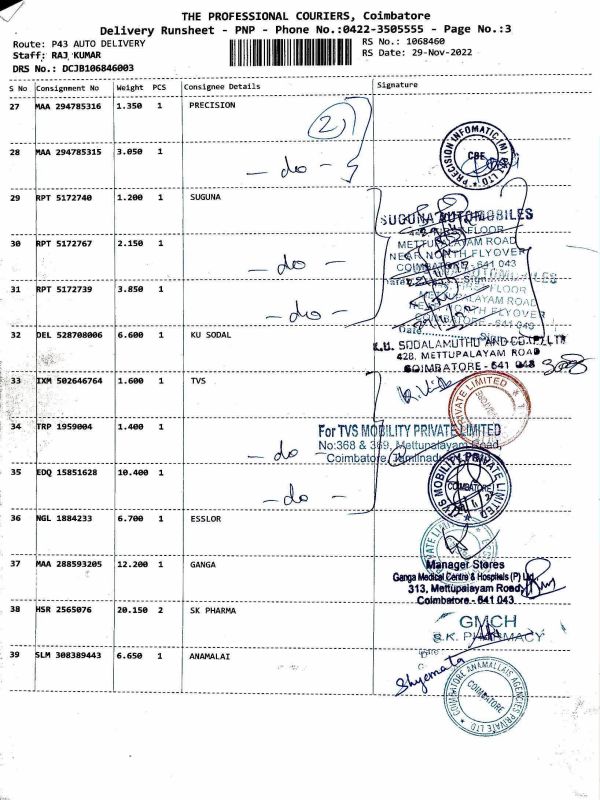 THE PROFESSIONAL COURIERS, Coimbatore
Delivery Runsheet - PNP - Phone No.:0422-3505555 - Page No.:3
Route: P43 AUTO DELIVERY
RS No.: 1068460
Staff: RAJ KUMAR
RS Date: 29-Nov-2022
DRS No.: DCJB106846003
S No Consignment No Weight PCS Consignee Details Signature
27 MAA 294785316 1.350 1 PRECISION
(2)
28 MAA 294785315 3.050 1
- do -
PRECISION INFOMATIC (M) PVT LTD
CBE
29 RPT 5172740 1.200 1 SUGUNA
SUGUNA AUTOMOBILES
FLOOR
METTUPALAYAM ROAD
NEAR NORTH FLYOVER
COIMBATORE - 641 043
30 RPT 5172767 2.150 1
- do -
31 RPT 5172739 3.850 1
- do -
FIRST FLOOR
METTUPALAYAM ROAD
NORTH FLYOVER
641 043
Date
32 DEL 528708006 6.600 1 KU SODAL
K.U. SODALAMUTHU AND CO. (P) LTD
428, METTUPALAYAM ROAD
COIMBATORE - 641 043
33 IXM 502646764 1.600 1 TVS
PRIVATE LIMITED
34 TRP 1959004 1.400 1
- do -
For TVS MOBILITY PRIVATE LIMITED
No:368 & 369, Mettupalayam Road,
Coimbatore, Tamilnadu
35 EDQ 15851628 10.400 1
- do -
TVS MOBILITY PRIVATE LIMITED
COIMBATORE
36 NGL 1884233 6.700 1 ESSLOR
37 MAA 288593205 12.200 1 GANGA
Manager Stores
Ganga Medical Centre & Hospitals (P) Ltd
313, Mettupalayam Road,
Coimbatore - 641 043
38 HSR 2565076 20.150 2 SK PHARMA
GMCH
S.K. PHARMACY
39 SLM 308389443 6.650 1 ANAMALAI
Shyemata
COIMBATORE ANAMALLAIS AGENCIES PRIVATE LTD
COIMBATORE